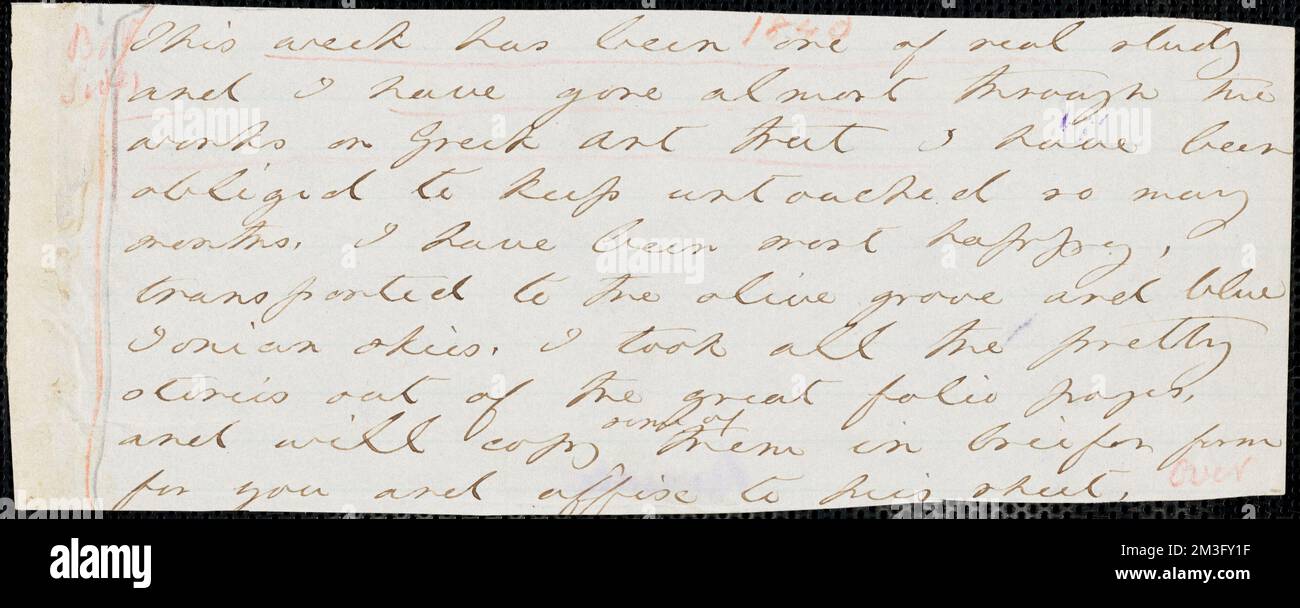 1840
Both
Sides
This week has been one of real study
and I have gone almost through the
works on Greek art that I have been
obliged to keep untouched so many
months. I have been most happy,
transported to the olive grove and blue
Ionian skies. I took all the pretty
stories out of the great folio pages,
some of
and will copy them in briefer form
for you and affix to this sheet.
Over
alamy
Image ID: 2M3FY1F
www.alamy.com